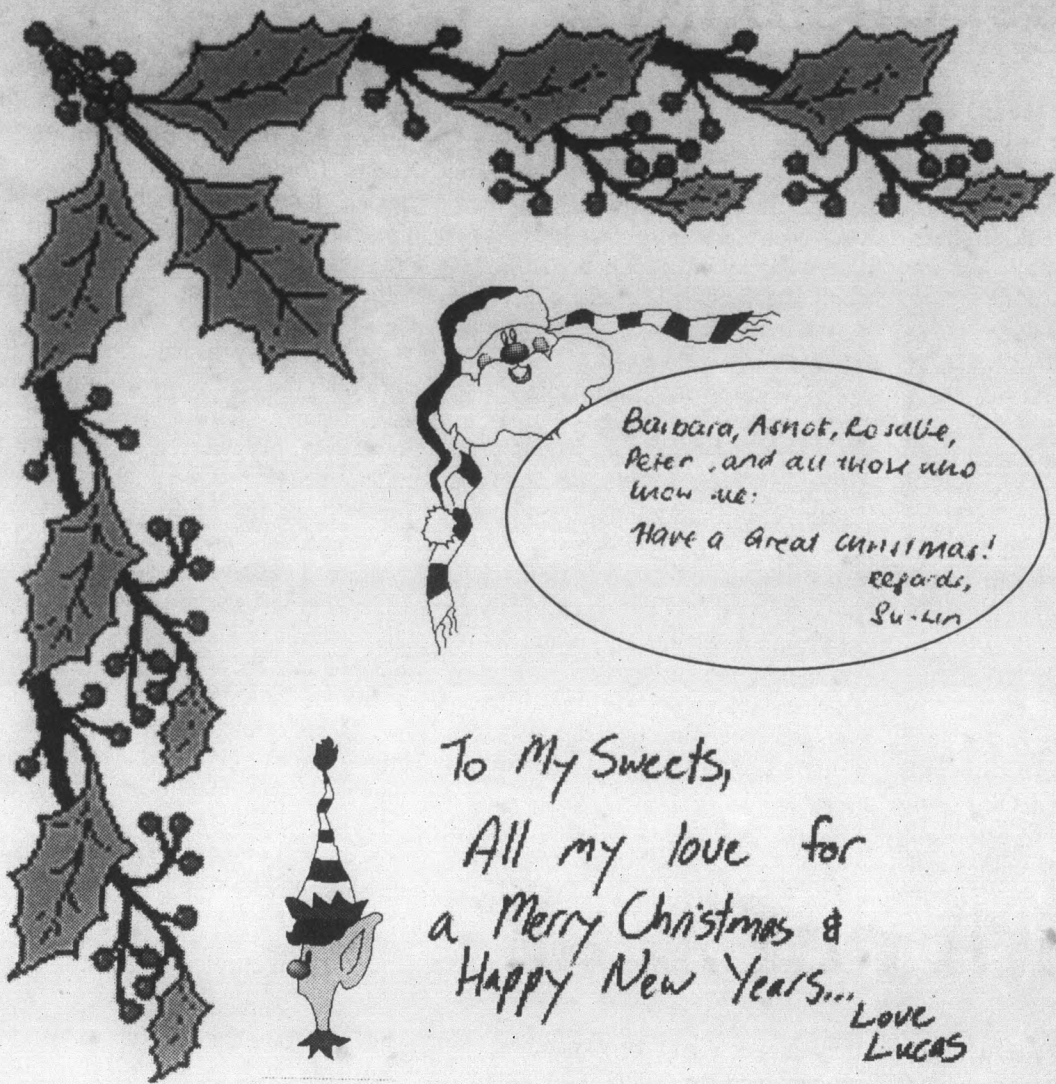 Barbara, Arnot, Rosalie,
Peter, and all those who
know me:
Have a Great Christmas!
Regards,
Su-Lin
To My Sweets,
All my love for
a Merry Christmas &
Happy New Years...
Love
Lucas